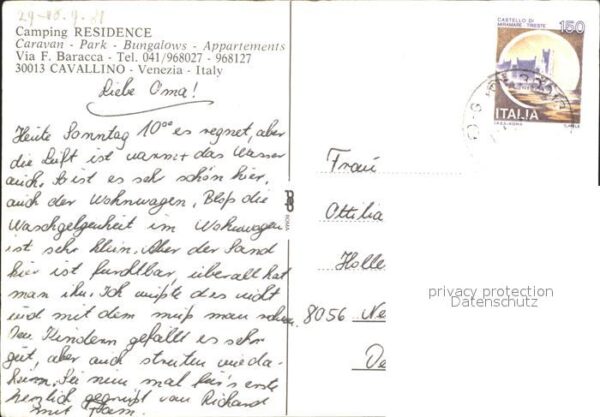 29-30.9.81
Camping RESIDENCE
Caravan - Park - Bungalows - Appartements
Via F. Baracca - Tel. 041/968027 - 968127
30013 CAVALLINO - Venezia - Italy
Liebe Oma!
Heute Sonntag 10⁰⁰ es regnet, aber
die Luft ist warm + das Wasser
auch. Es ist es sehr schön hier,
auch der Wohnwagen. Bloß die
Waschgelgenheit im Wohnwagen
ist sehr klein. Aber der Sand
hier ist furchtbar, überalt hat
man ihn. Ich wußte des nicht
und mit dem muß man
Den Kindern gefällt es sehr
gut, aber auch streiten wie da-
heim. Sei nun mal für's erste
herzlich gegrüßt von Richard
mit Fham.
ROMA
CASTELLO DI
MIRAMARE TRIESTE
150
ITALIA
Frau
Ottilia
Holle
8056 Ne
De
privacy protection
Datenschutz